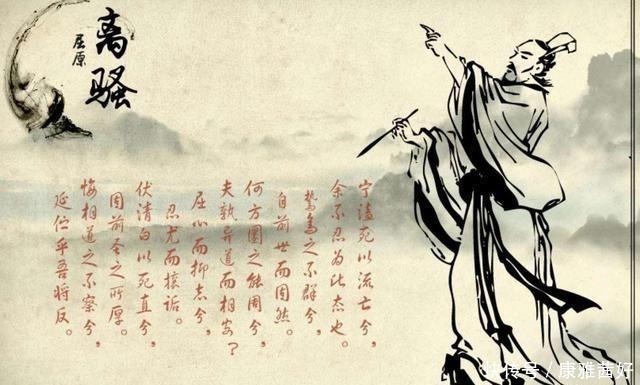 离骚
屈原
宁溘死以流亡兮，
余不忍为此态也。
鸷鸟之不群兮，
自前世而固然。
何方圜之能周兮，
夫孰异道而相安？
屈心而抑志兮，
忍尤而攘诟。
伏清白以死直兮，
固前圣之所厚。
悔相道之不察兮，
延伫乎吾将反。
传号/康雅茜好